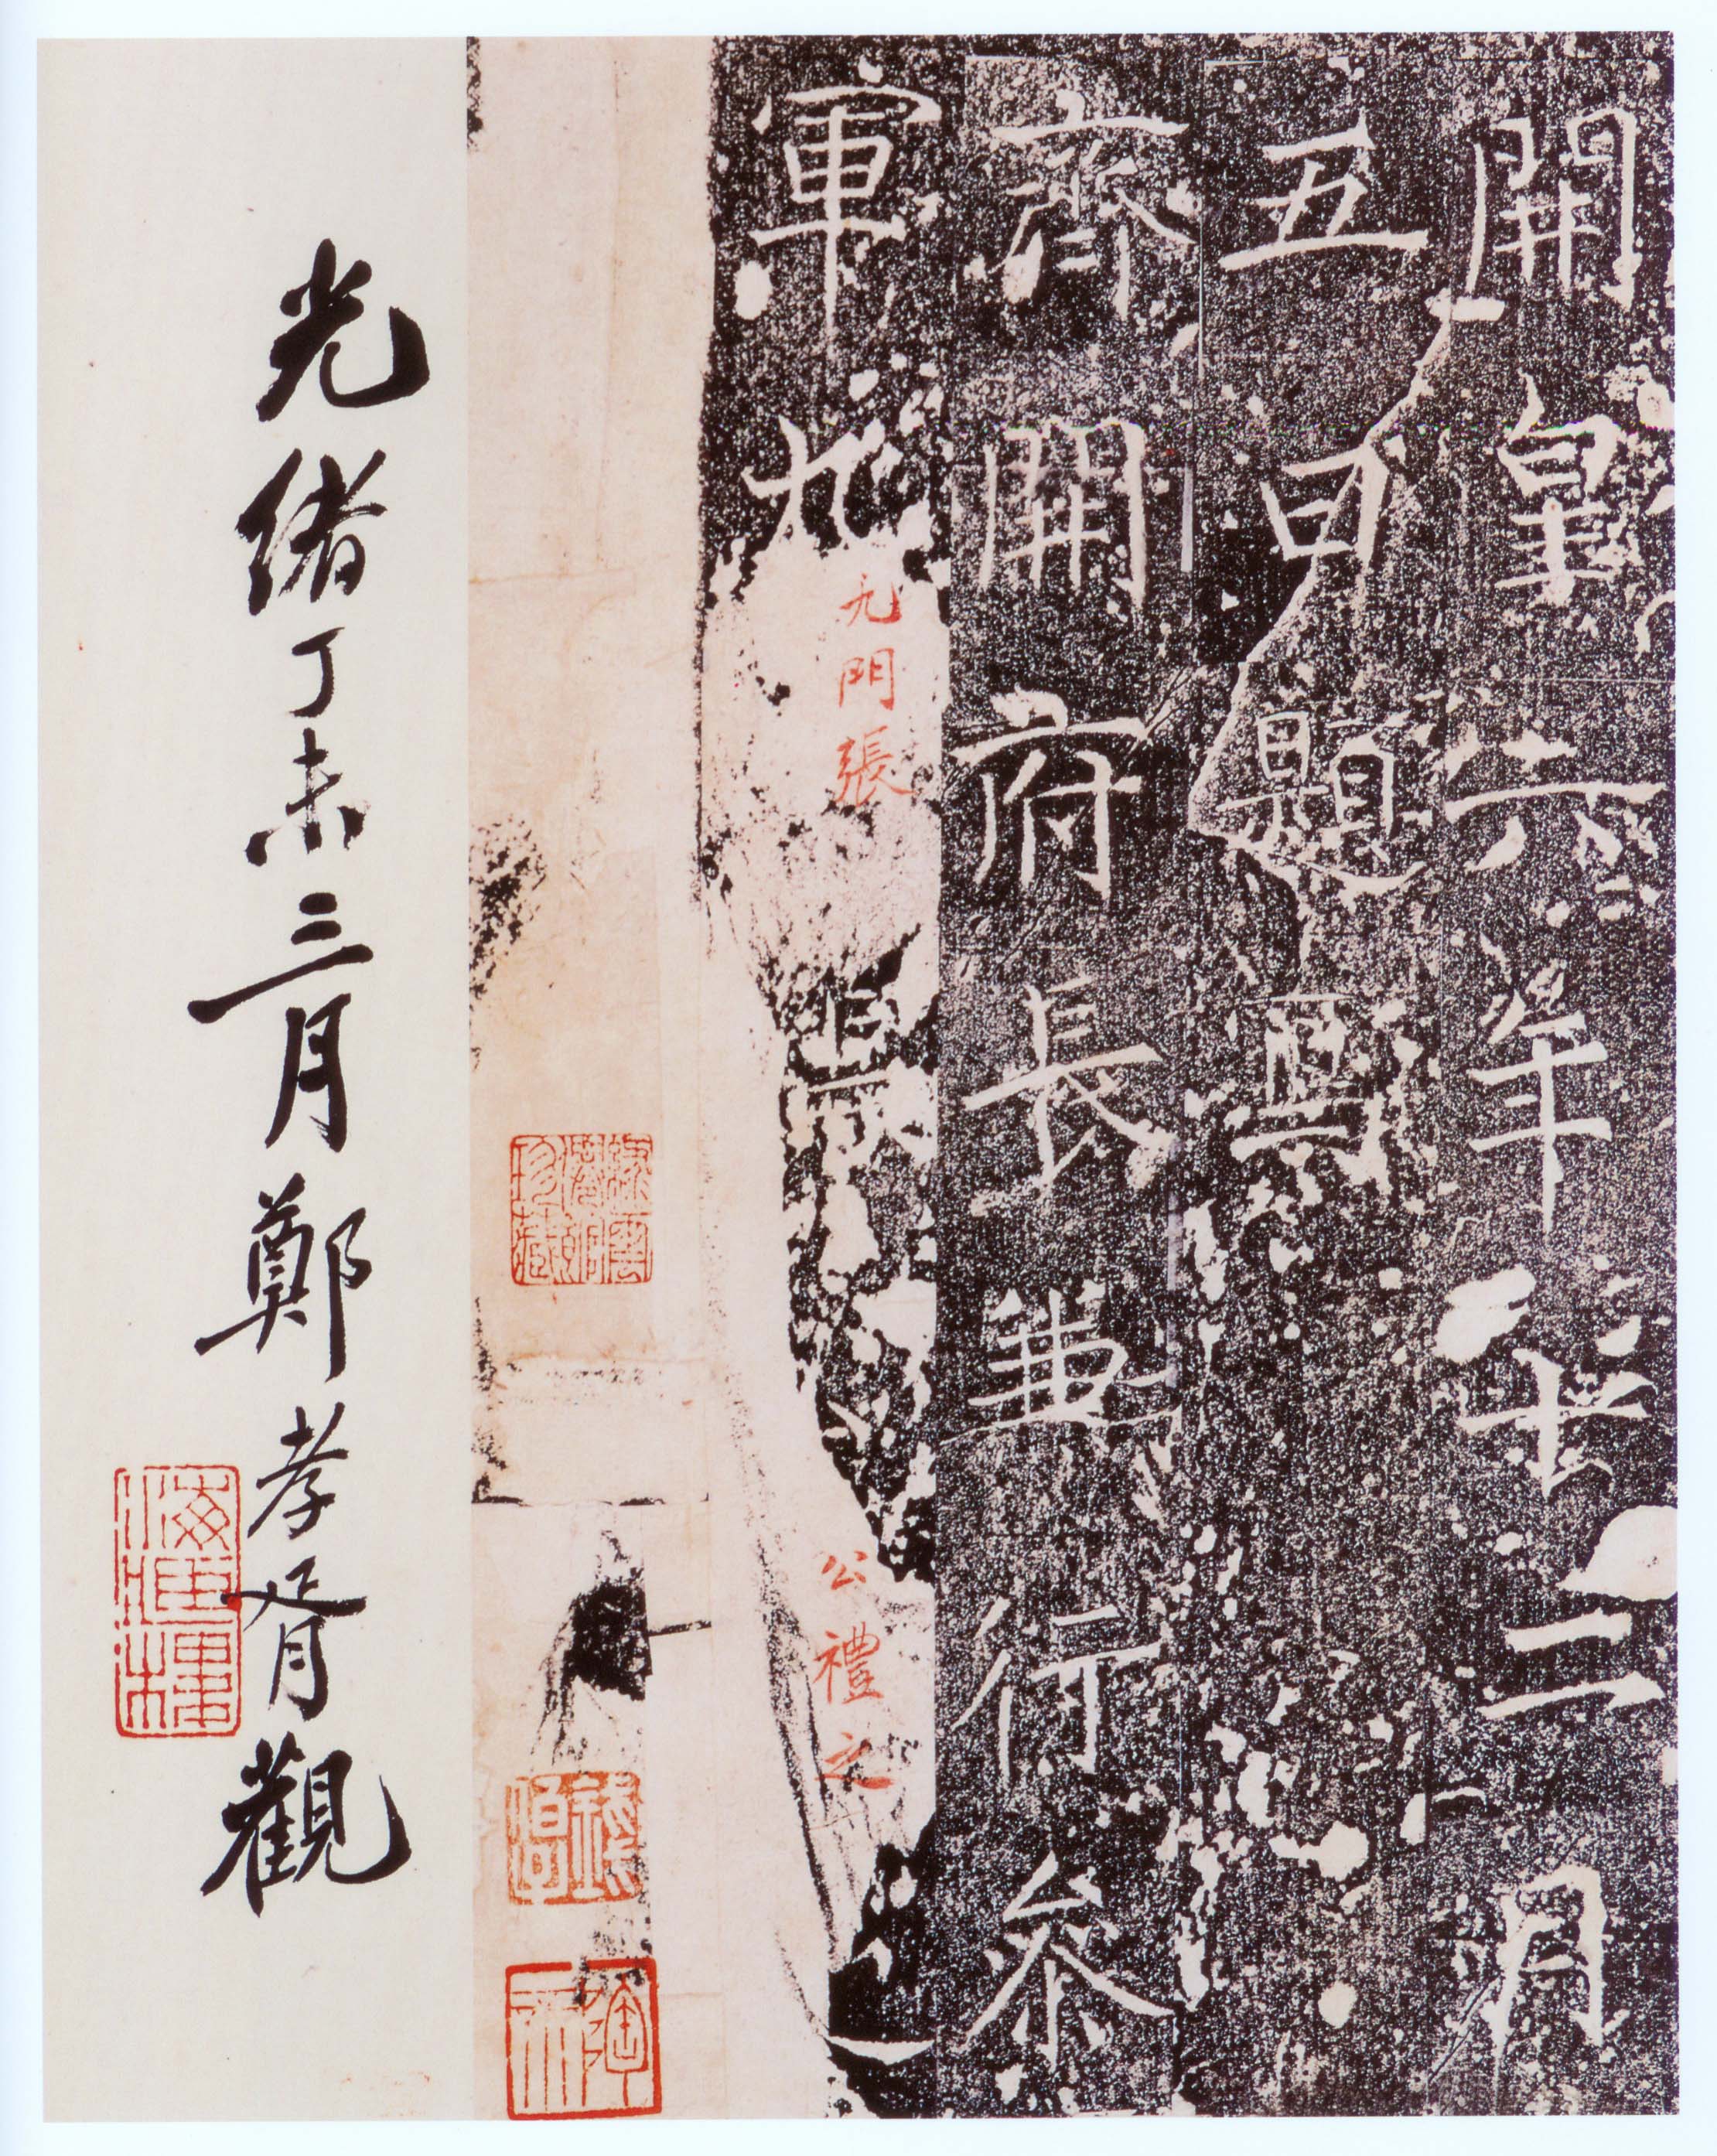 開皇六年十二月
五日題寫
齊開府長兼行參
軍九
九門張
公禮之
光緒丁未三月鄭孝胥觀